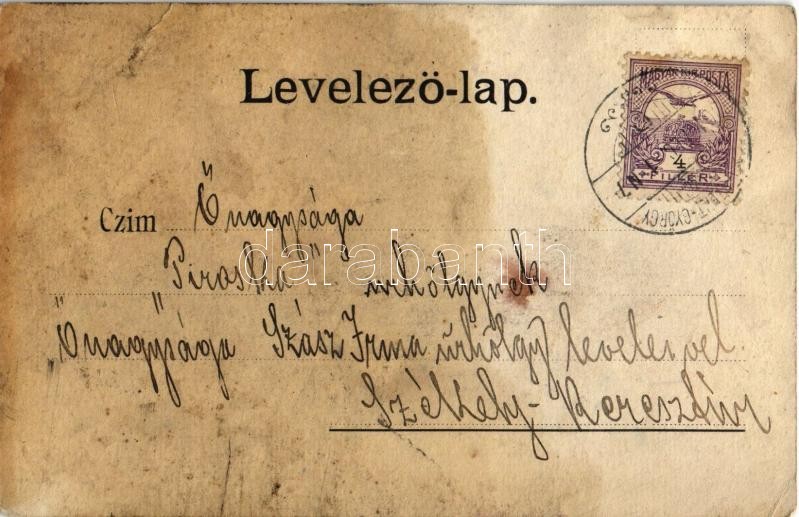 Levelező-lap.
MAGYAR KIR. POSTA
4
FILLÉR
GYÖRGY
Czim Őnagysága
"Piroska" úrhölgynek
Őnagysága Szász Irma úrhölgy leveleivel
Székely-Keresztúr
darabanth